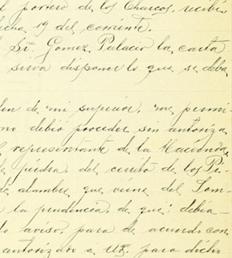 el potrero de los Charcos, recibi
fecha 19 del corriente.
Sr. Gomez Palacio la carta
sirva disponer lo que se deba
den de mi superior, me permi
no debió proceder sin autoriza
el representante de la Hacienda
de piedra del cerrito de los Pi
de alambre que viene del Lom
la prudencia de que debia
aviso, para de acuerdo con
autorizado a Ud. para dicho